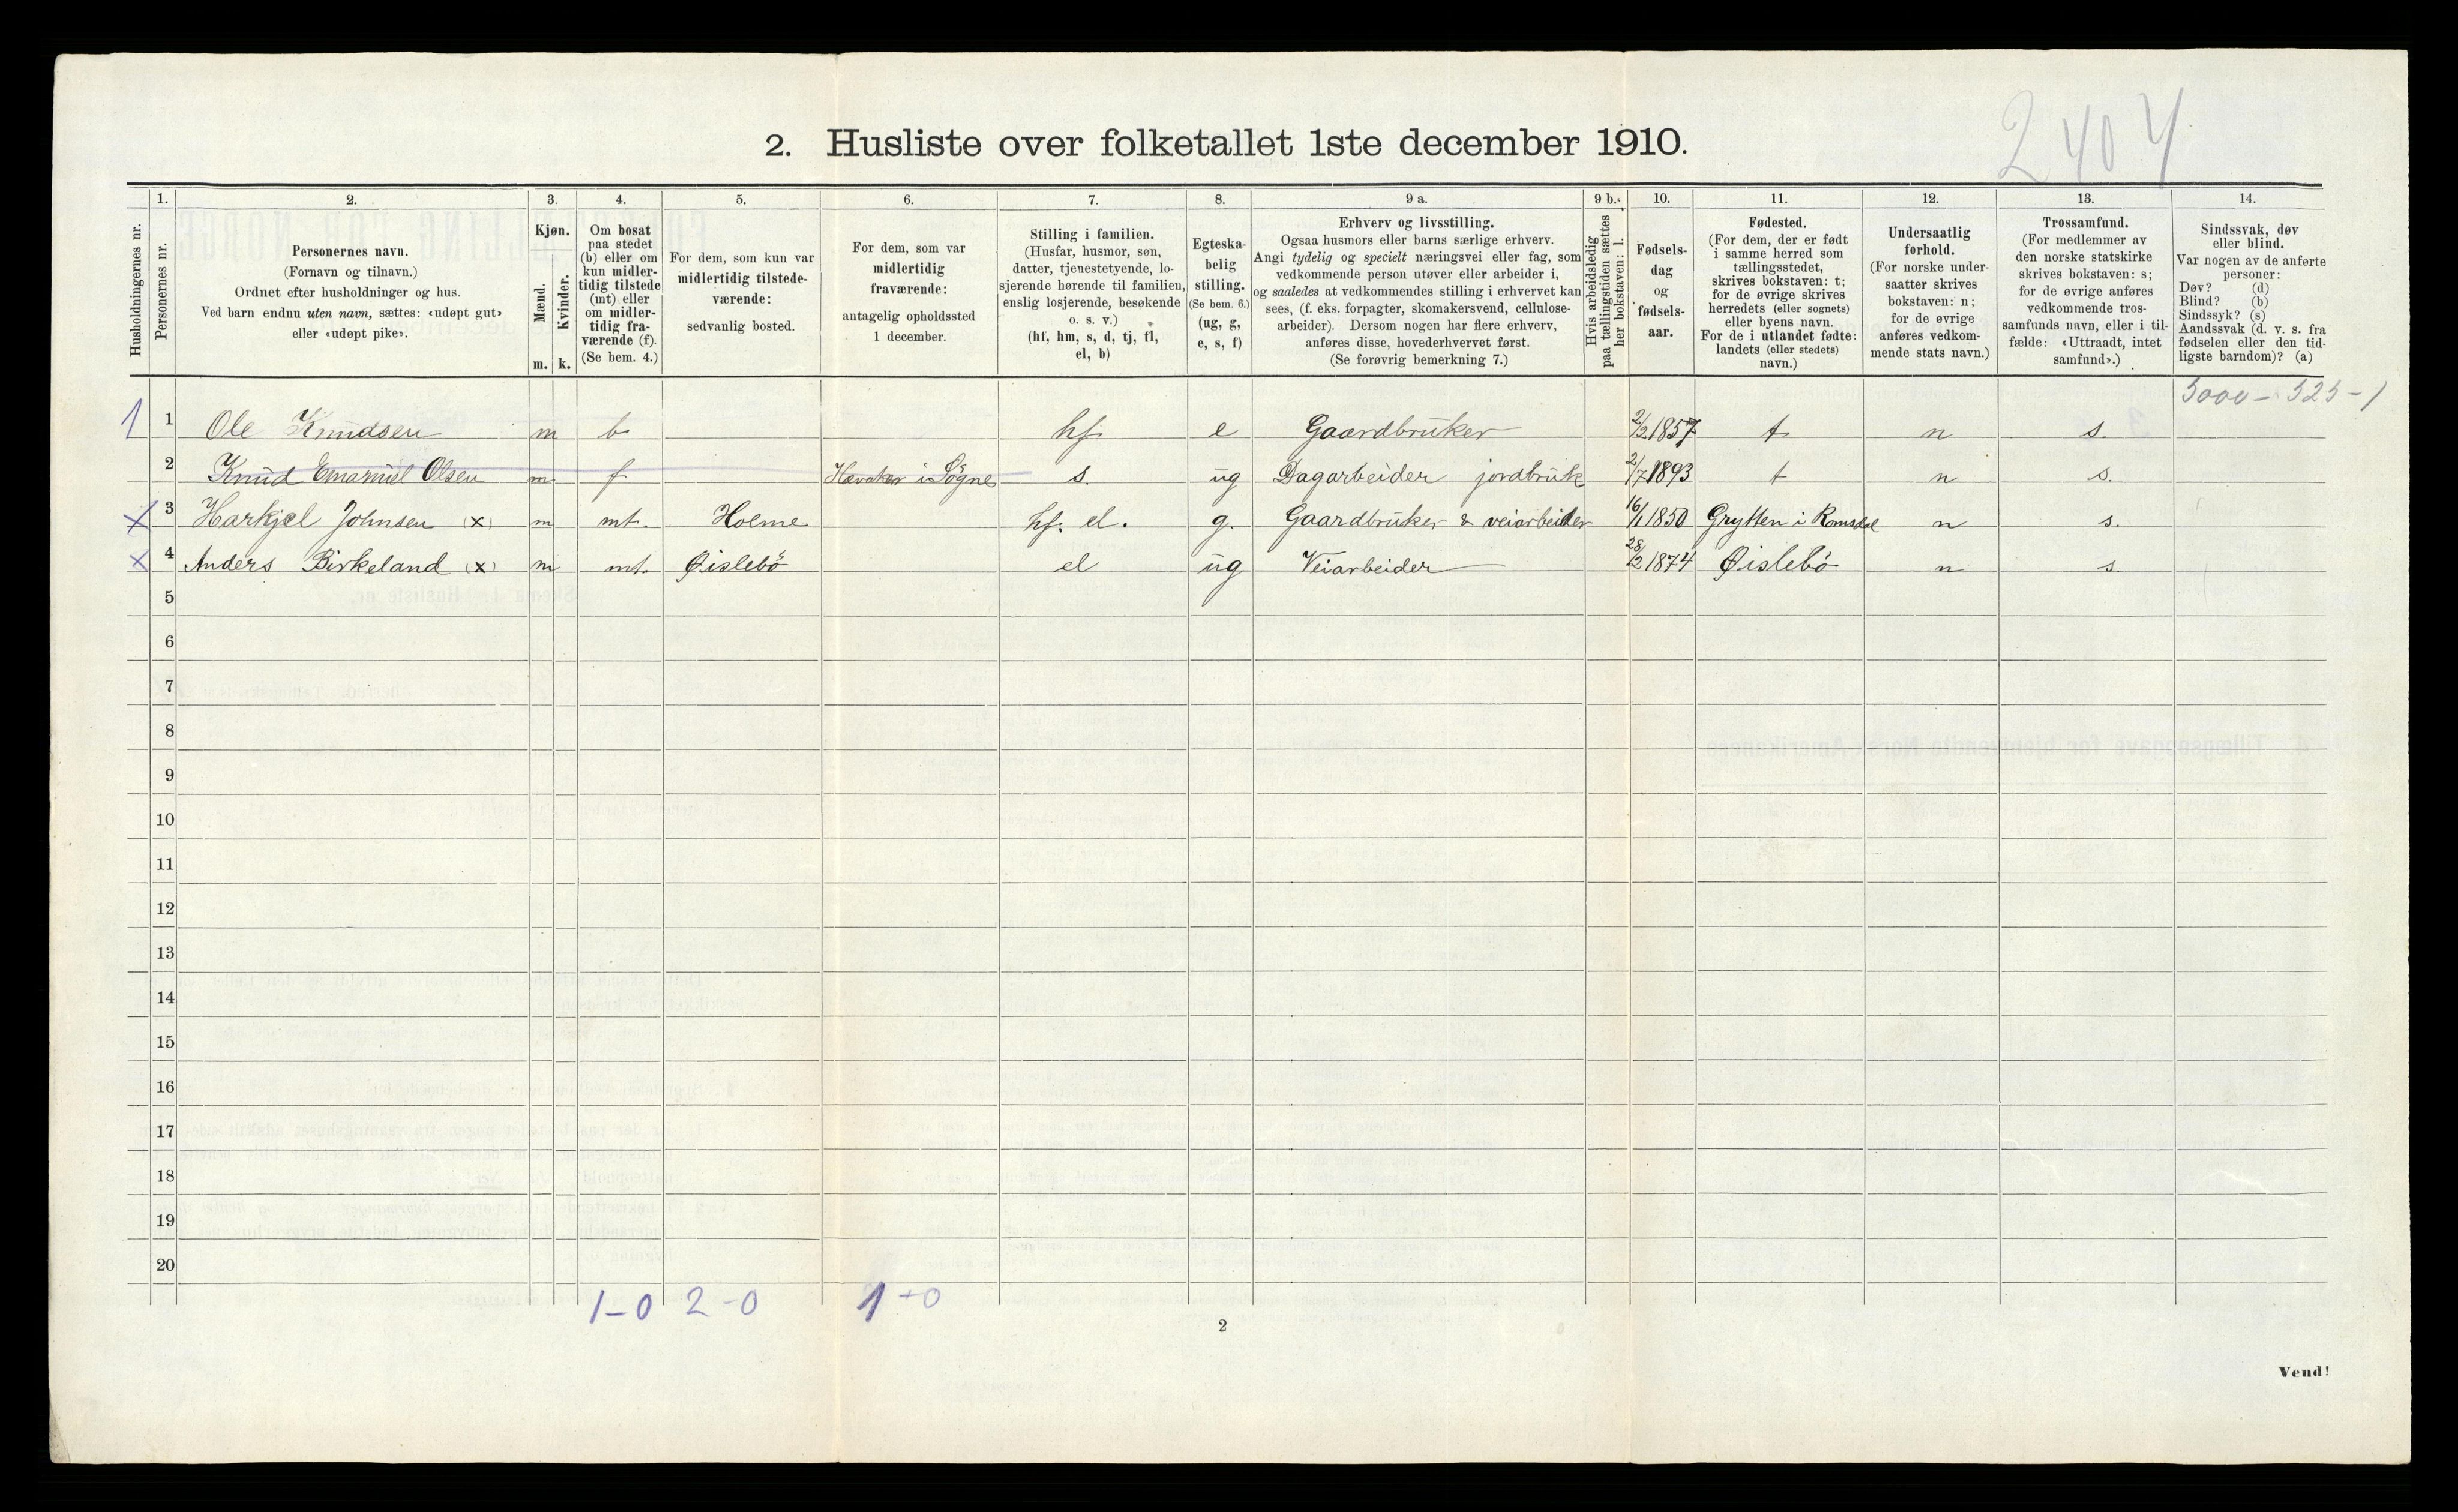 2404
2. Husliste over folketallet 1ste december 1910.
Husholdningernes nr.
1. Personernes nr.
2. Personernes navn. (Fornavn og tilnavn.) Ordnet efter husholdninger og hus. Ved barn endnu uten navn, sættes: «udøpt gut» eller «udøpt pike».
3. Kjøn. Mænd. m. Kvinder. k.
4. Om bosat paa stedet (b) eller om kun midlertidig tilstede (mt) eller om midlertidig fraværende (f). (Se bem. 4.)
5. For dem, som kun var midlertidig tilstedeværende: sedvanlig bosted.
6. For dem, som var midlertidig fraværende: antagelig opholdssted 1 december.
7. Stilling i familien. (Husfar, husmor, søn, datter, tjenestetyende, losjerende hørende til familien, enslig losjerende, besøkende o. s. v.) (hf, hm, s, d, tj, fl, el, b)
8. Egteskabelig stilling. (Se bem. 6.) (ug, g, e, s, f)
9 a. Erhverv og livsstilling. Ogsaa husmors eller barns særlige erhverv. Angi tydelig og specielt næringsvei eller fag, som vedkommende person utøver eller arbeider i, og saaledes at vedkommendes stilling i erhvervet kan sees, (f. eks. forpagter, skomakersvend, cellulosearbeider). Dersom nogen har flere erhverv, anføres disse, hovederhvervet først. (Se forøvrig bemerkning 7.)
9 b. Hvis arbeidsledig paa tællingstiden sættes her bokstaven: l.
10. Fødselsdag og fødselsaar.
11. Fødested. (For dem, der er født i samme herred som tællingsstedet, skrives bokstaven: t; for de øvrige skrives herredets (eller sognets) eller byens navn. For de i utlandet fødte: landets (eller stedets) navn.)
12. Undersaatlig forhold. (For norske undersaatter skrives bokstaven: n; for de øvrige anføres vedkommende stats navn.)
13. Trossamfund. (For medlemmer av den norske statskirke skrives bokstaven: s; for de øvrige anføres vedkommende trossamfunds navn, eller i tilfælde: «Uttraadt, intet samfund».)
14. Sindssvak, døv eller blind. Var nogen av de anførte personer: Døv? (d) Blind? (b) Sindssyk? (s) Aandssvak (d. v. s. fra fødselen eller den tidligste barndom)? (a)
5000 - 525 - 1
1 1 Ole Knudsen m b hf e Gaardbruker 2/2 1857 t n s.
2 Knud Emanuel Olsen m f i Søgne s. ug Dagarbeider jordbruk 2/7 1893 t n s.
x 3 Harkjel Johnsen (x) m mt. Holme hf. el. g. Gaardbruker & veiarbeider 16/1 1850 Grytten i Romsdal n s.
x 4 Anders Birkeland (x) m mt. Øislebö el ug Veiarbeider 28/2 1874 Øislebö n s.
5
6
7
8
9
10
11
12
13
14
15
16
17
18
19
20
1-0 2-0 1-0
2
Vend!